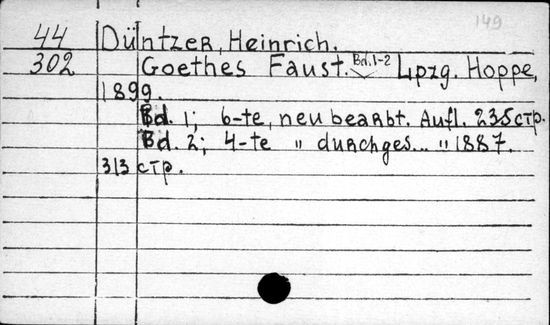 149
44 Düntzer, Heinrich.
302 Goethes Faust. Bd. 1-2 Lpzg. Hoppe,
1899.
Bd. 1; 6-te, neu bearbt. Aufl. 235 стр.
Bd. 2; 4-te " durchges... " 1887.
313 стр.